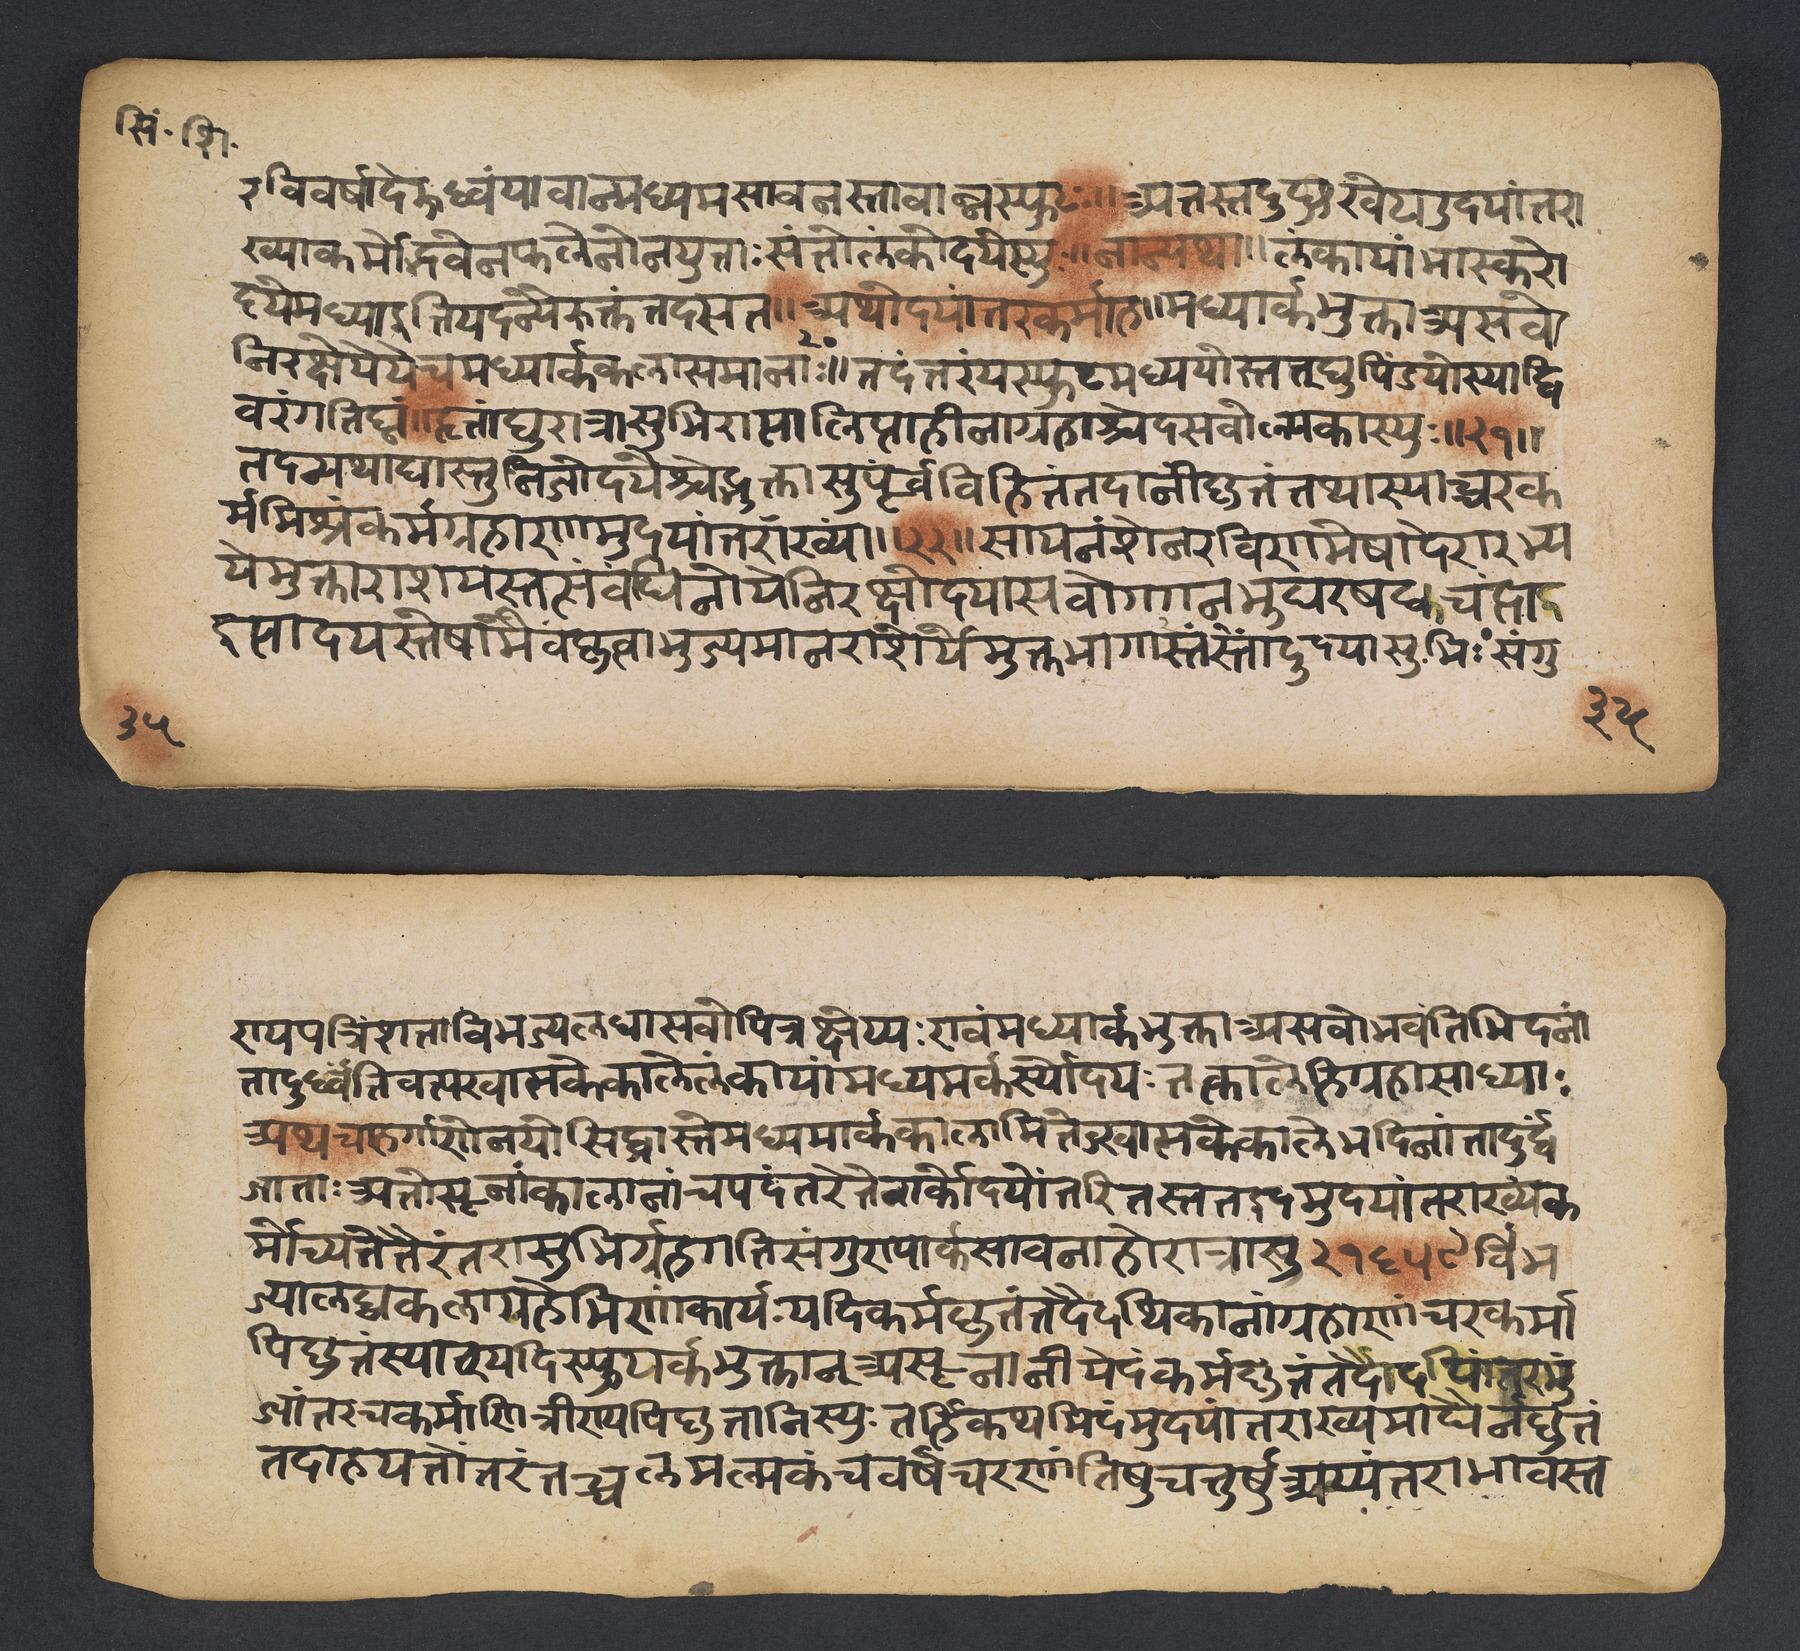 सिं. शि.
रविवर्षादेरूर्ध्वंयावान्मध्यमसावनस्तावान्नस्फुटः॥ अतस्तदुद्भखेटाउदयांतरा
ख्याकर्मोद्भवेनफलेनोनयुताः संतोलंकोदयेस्युः॥ नान्यथा॥ लंकायांभास्करो
दयेमध्याइतियदन्यैरुक्तंतदसत॥ अथोदयांतरकर्माह॥ मध्यार्कभुक्ता असवो
निरक्षेयेयेचमध्यार्ककलासमानाः॥ तदंतरंयस्फुटमध्ययोस्तत्द्युपिंडयोस्याद्वि
वरंगतिघ्नं॥ हृतांद्युरात्रासुभिराप्तालिप्ताहीनाग्रहाश्चेदसवोल्पकास्युः॥२१॥
तदन्यथाघास्तुनिजोदयैश्चेद्भुक्तासुपूर्वंविहितंतदानींकृतंतथास्याच्चरक
र्ममिश्रंकर्मग्रहाणामुदयांतराख्यं॥२२॥ सायनांशेनरविणामेषादेरारभ्य
येभुक्ताराशयस्तत्संबंधिनोयेनिरक्षोदयासवोगगनभुधरषट्कचंद्राइ
इत्यादयस्तेषामैक्यंकृत्वाभुज्यमानराशेर्येभुक्तभागास्तंस्तादुदयासुभिः संगु
३५
३५
णयपत्रिंशताविभज्यलब्धासवोपितत्रक्षेप्यः एवंमध्यार्कभुक्ता असवोभवंतिभदिनां
तादूर्ध्वंतिवत्पस्वात्मकेकालेलंकायांमध्यमर्कस्योदयः तत्कालेहिग्रहासाध्याः
अथचाहर्गणोनयेसिद्धास्तेमध्यमार्ककलामितेऽस्वात्मकेकालेभदिनांतादूर्ध्वं
जाताः अतोसूनांकालानांचपदंतरंतेनार्कोदयोंतरितस्ततइदमुदयांतराख्यंक
र्मोच्यतेतैरंतरासुभिर्ग्रहगतिसंगुणयार्कसावनाहोरात्रासु २१६५९ विभ
ज्यालब्धकलाग्रहेभिरणंकार्यं यदिकर्मकृतंतदौदयिकानांग्रहाणां चरकर्मा
पिकृतंस्यात्यदिस्फुटार्कभुक्तान् असूनानीयेदंकर्मकृतंतदौदयिपांतरभुं
जांतरचकर्माणि त्रीण्यपिकृतानिस्युः तर्हिकथमिदंमुदयांतराख्यमाद्यैर्नकृतं
तदाहयतोंतरंतच्चलमल्पकंचवर्षेचरणांतिषुचतुर्षु अप्यंतराभावस्त